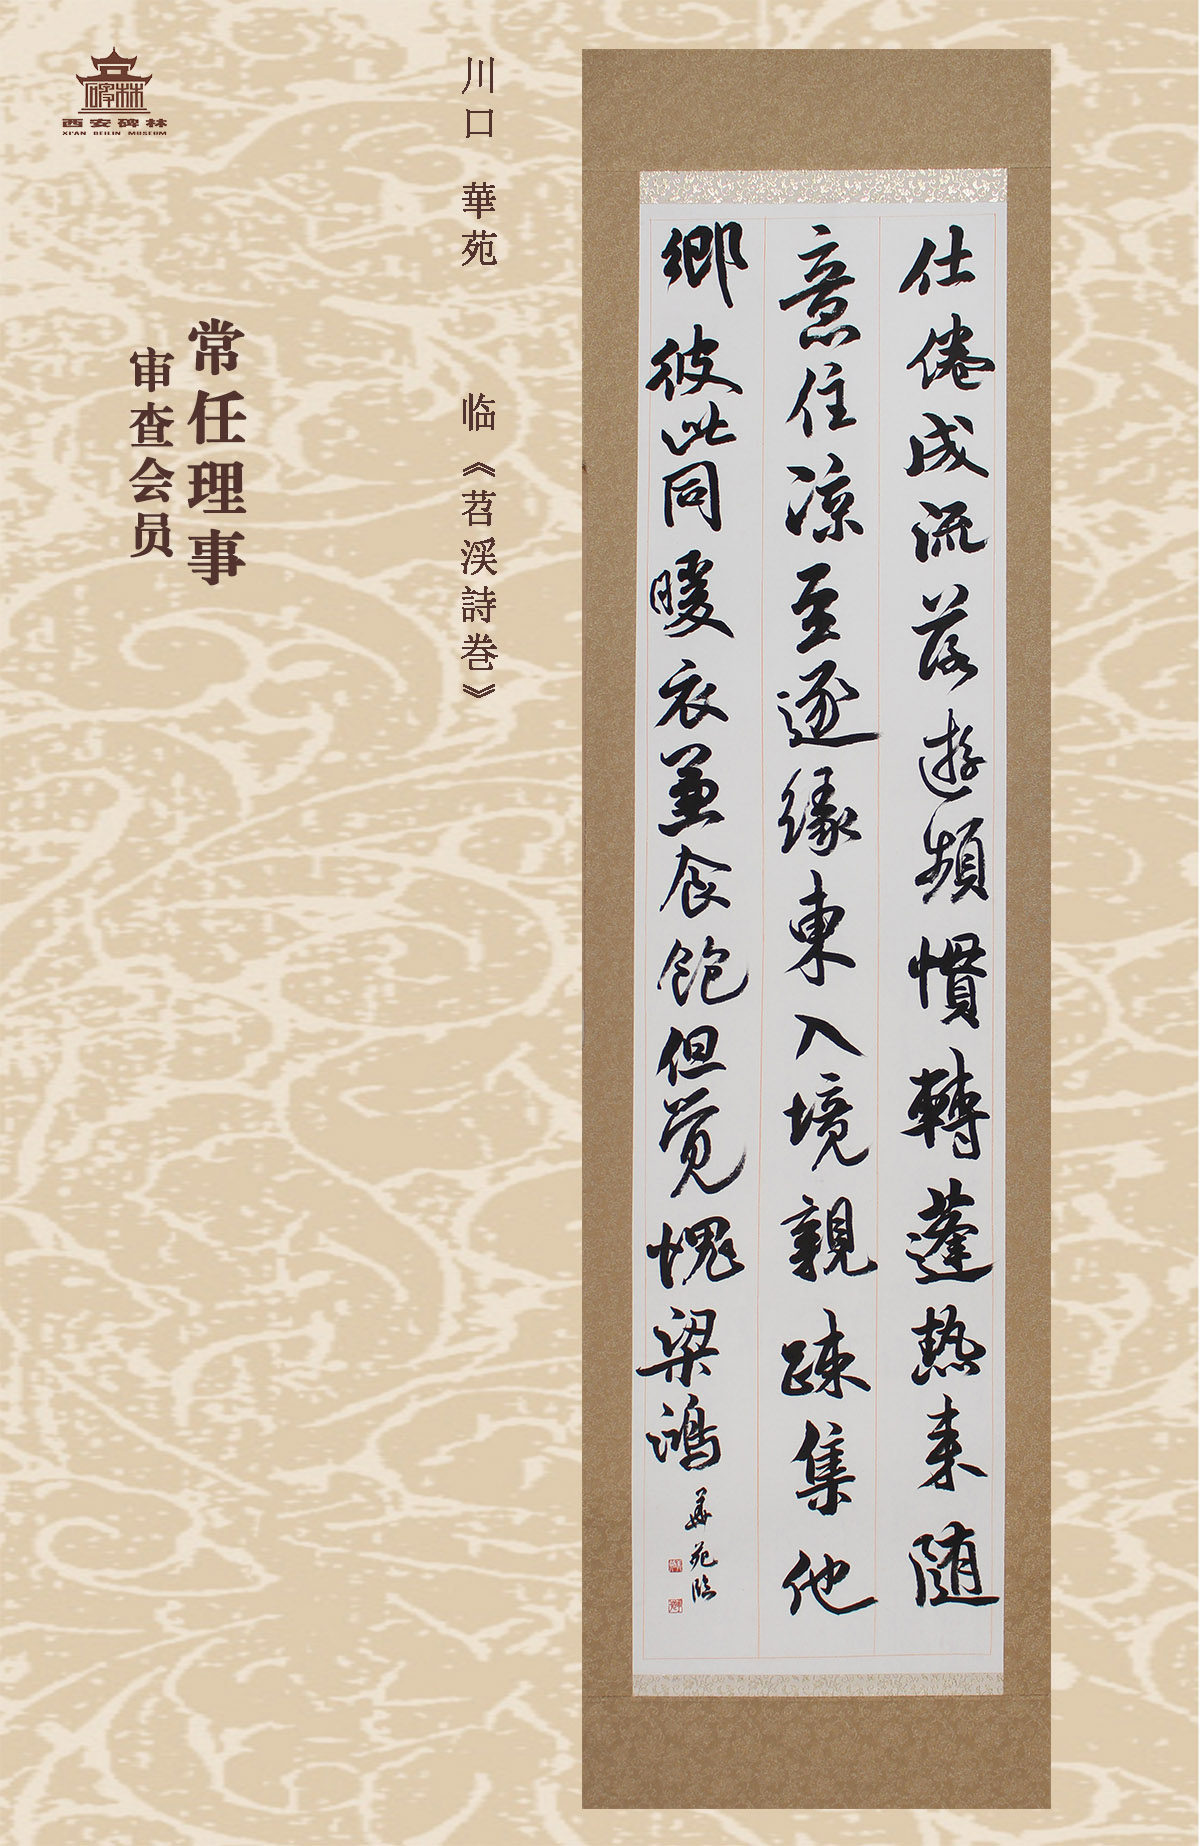 碑林
西安碑林
XI'AN BEILIN MUSEUM
川口 華苑 临《苕渓詩巻》
常任理事
审查会员
仕倦成流落遊頻慣轉蓬热来随
意住凉至逐縁東入境親疎集他
郷彼此同暖衣兼食飽但覚愧梁鴻
華苑臨